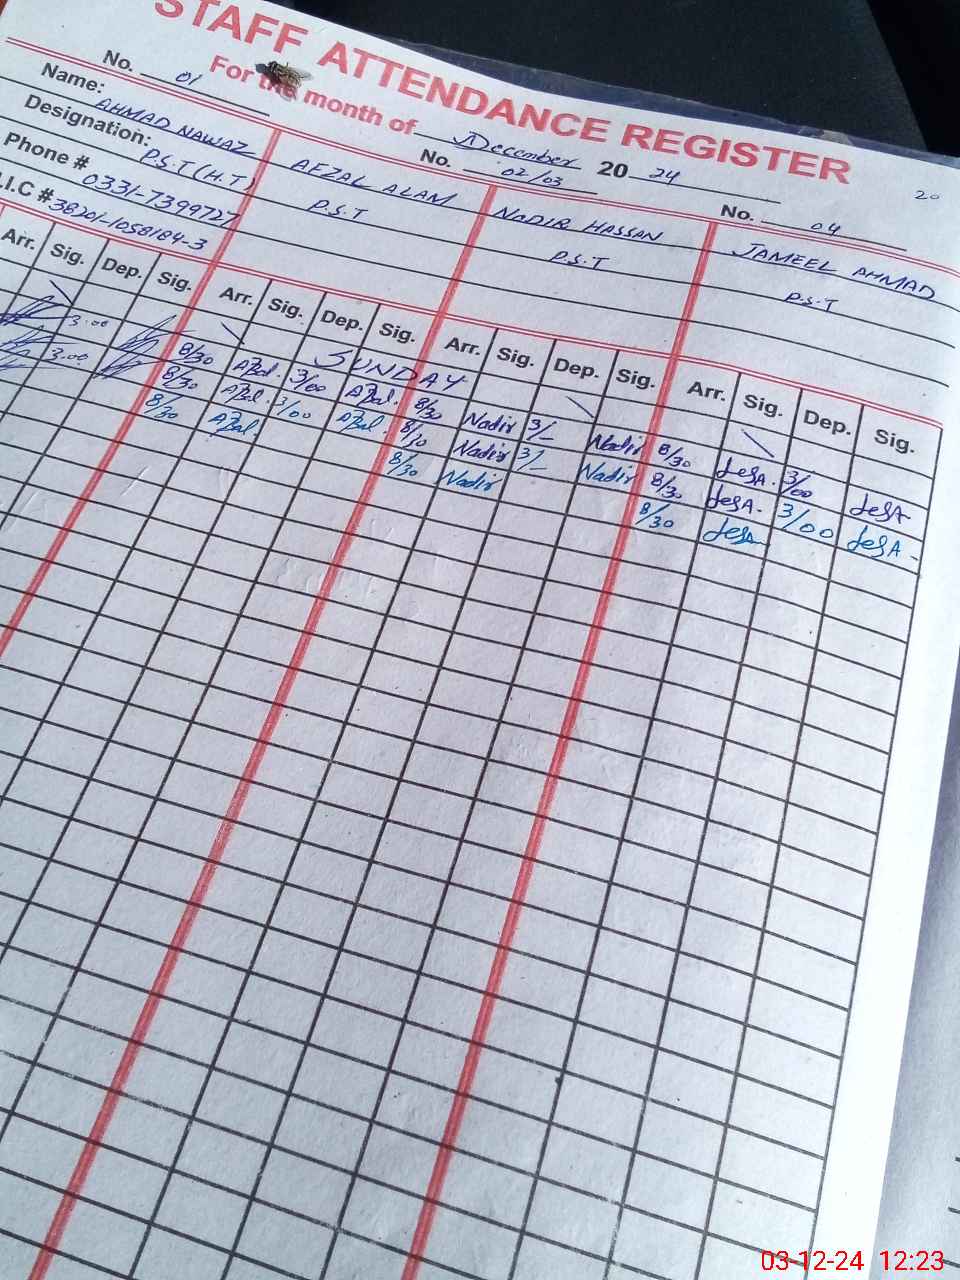 STAFF ATTENDANCE REGISTER
For the month of December 20 24
20
No. 01
No. 02/03
No. 04
Name: AHMAD NAWAZ AFZAL ALAM NADIR HASSAN JAMEEL AHMAD
Designation: P.S.T (H.T) P.S.T P.S.T P.S.T
Phone # 0331-7399727
.I.C # 38201-1058184-3
Arr. Sig. Dep. Sig. Arr. Sig. Dep. Sig. Arr. Sig. Dep. Sig. Arr. Sig. Dep. Sig.
SUNDAY
3.00 8/30 Afzal. 3/00 Afzal. 8/30 Nadir 3/- Nadir 8/30 3/00
3.00 8/30 Afzal. 3/00 Afzal. 8/30 Nadir 3/- Nadir 8/30 3/00
8/30 Afzal. 8/30 Nadir 8/30
03-12-24 12:23